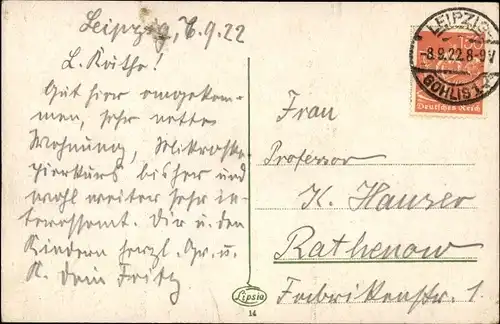 Leipzig, 7.9.22
L. Käthe!
Gut hier angekom-
men, sehr nette
Wohnung, Mikrosko-
pierkurs bisher und
wohl weiter sehr in-
teressant. Dir u. den
Kindern herzl. Gr. u.
K. Dein Fritz
LEIPZIG
-8.9.22.8-9V
GOHLIS
150
Deutsches Reich
Frau
Professor
K. Hauser
Rathenow
Fabrikenstr. 1.
Lipsia
14